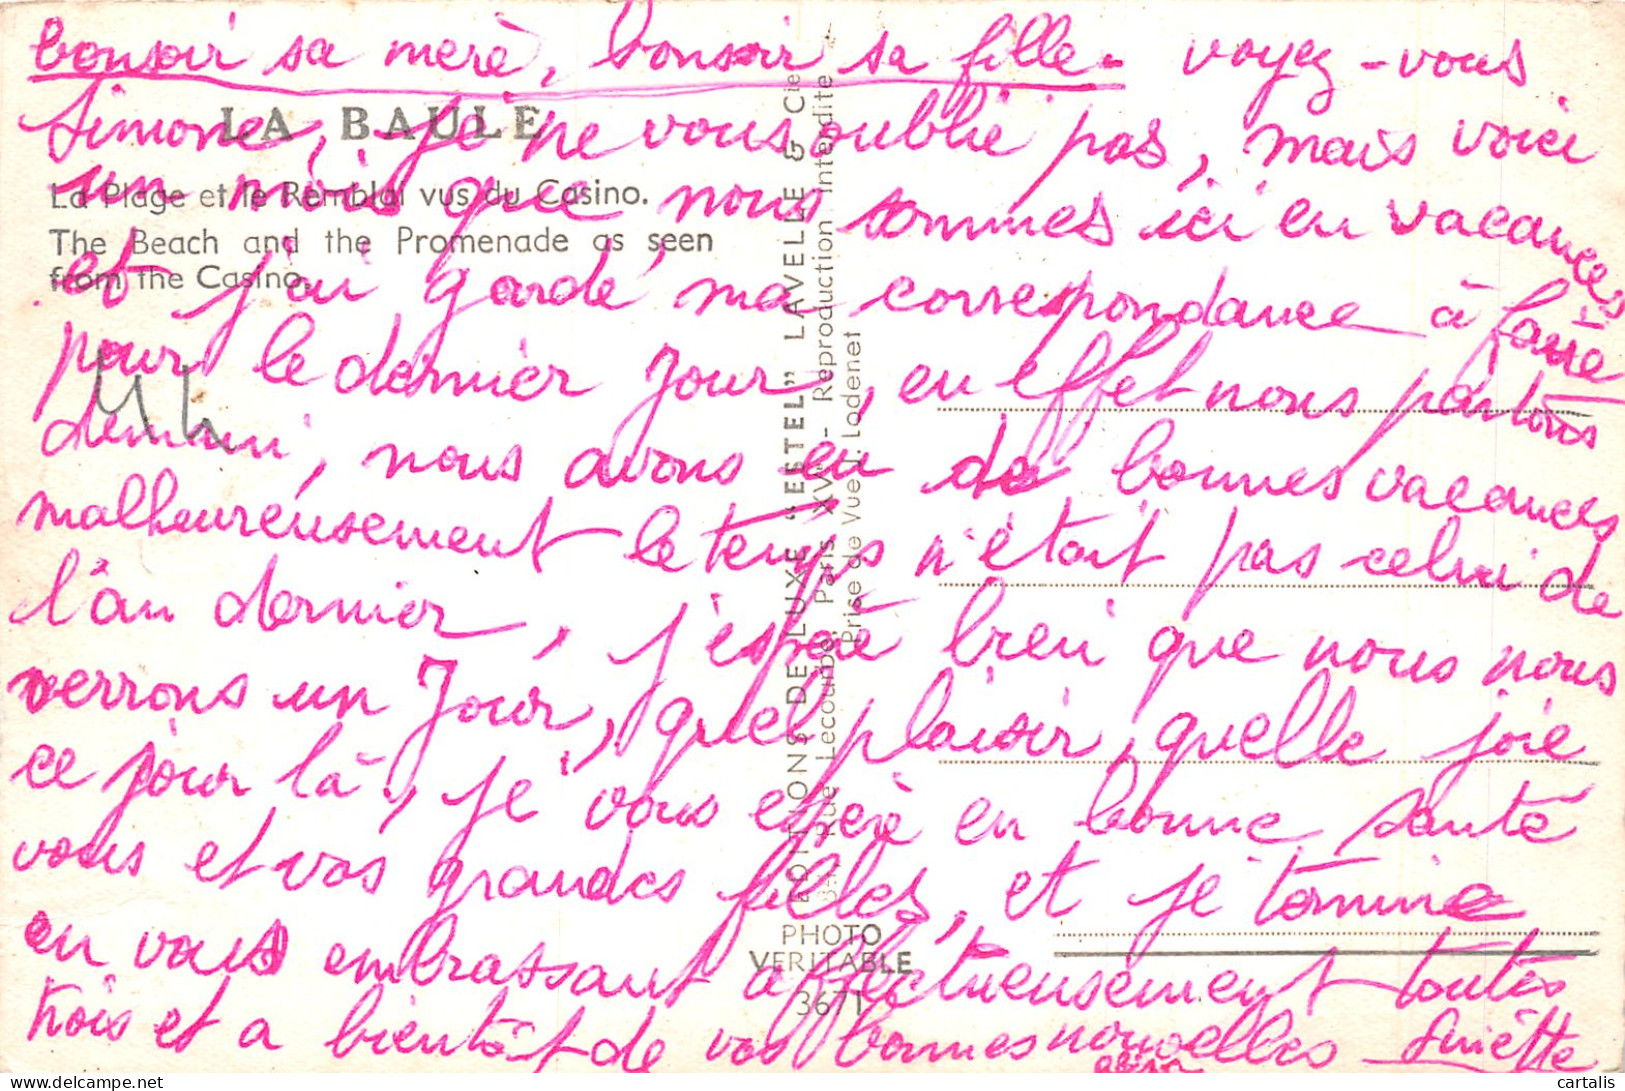 bonsoir sa mère, bonsoir sa fille. voyez-vous
Simone, je ne vous oublie pas, mais voici
un mois que nous sommes ici en vacances
et j'ai gardé ma correspondance à faire
pour le dernier jour, en effet nous partons
demain, nous avons eu de bonnes vacances
malheureusement le temps n'était pas celui de
l'an dernier, j'espère bien que nous nous
verrons un jour, quel plaisir, quelle joie
ce jour là, je vous espère en bonne santé
vous et vos grandes filles, et je termine
en vous embrassant affectueusement toutes
trois et a bientôt de vos bonnes nouvelles
LA BAULE
La Plage et le Remblai vus du Casino.
The Beach and the Promenade as seen
from the Casino.
EDITIONS DE LUXE "ESTEL" LAVELLE & Cie
Rue Lecourbe, Paris XVe - Reproduction interdite
Prise de Vue J. Lodenet
PHOTO
VERITABLE
3671
cartalis